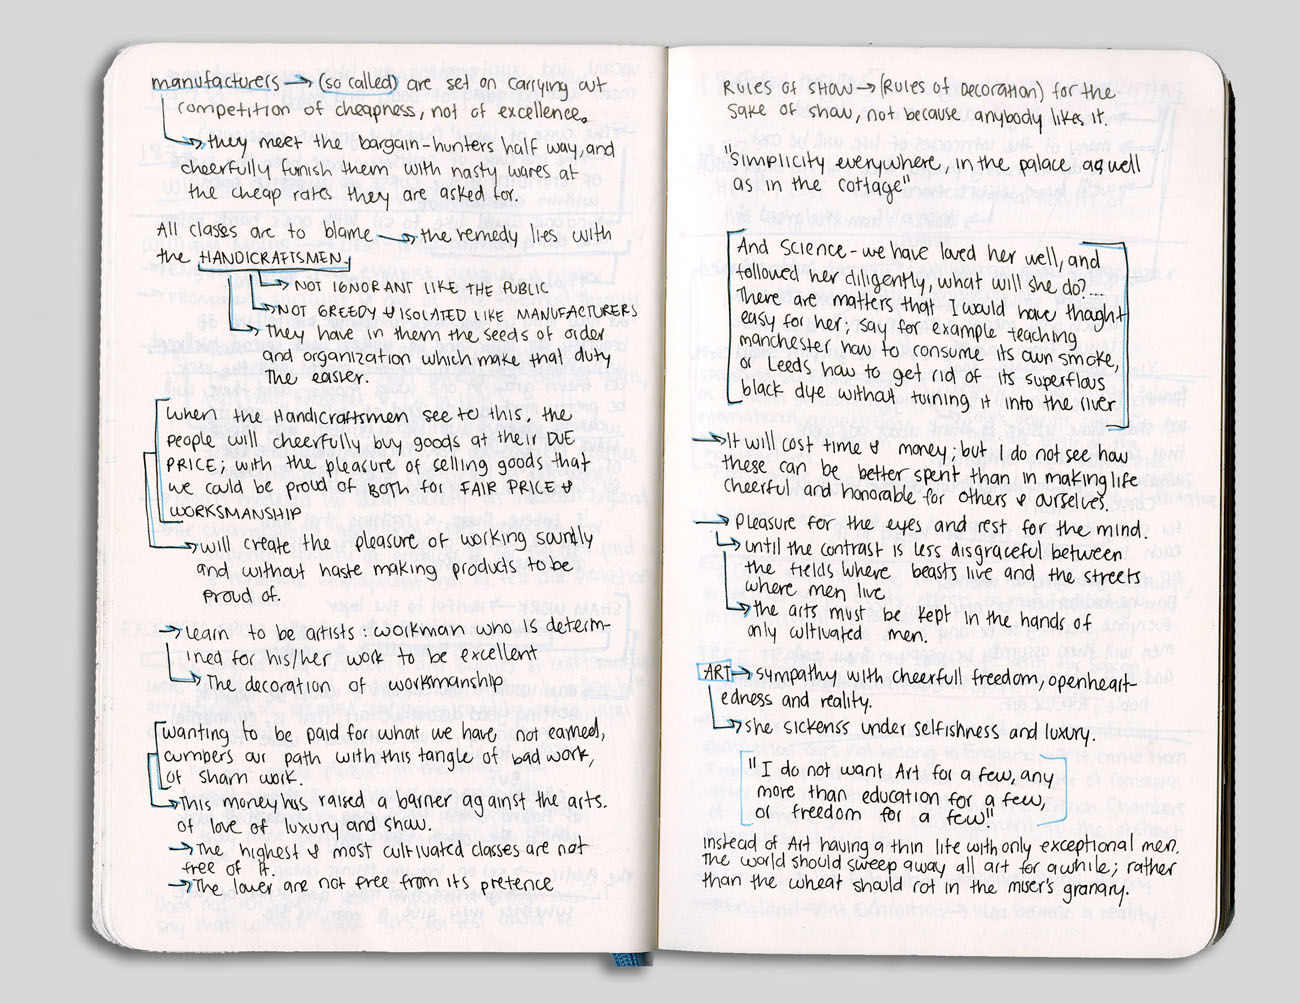 manufacturers → (so called) are set on carrying out
competition of cheapness, not of excellence.
→ they meet the bargain-hunters half way, and
cheerfully furnish them with nasty wares at
the cheap rates they are asked for.
All classes are to blame → the remedy lies with
the HANDICRAFTSMEN.
→ NOT IGNORANT LIKE THE PUBLIC
→ NOT GREEDY & ISOLATED LIKE MANUFACTURERS
→ they have in them the seeds of order
and organization which make that duty
the easier.
When the Handicraftsmen see to this, the
people will cheerfully buy goods at their DUE
PRICE; with the pleasure of selling goods that
we could be proud of BOTH for FAIR PRICE &
WORKSMANSHIP
→ will create the pleasure of working soundly
and without haste making products to be
proud of.
→ learn to be artists: workman who is determ-
ined for his/her work to be excellent
→ The decoration of workmanship
Wanting to be paid for what we have not earned,
cumbers our path with this tangle of bad work,
of sham work.
→ This money has raised a barrier against the arts.
of love of luxury and show.
→ The highest & most cultivated classes are not
free of it.
→ The lower are not free from its pretence
Rules of show → (Rules of Decoration) for the
sake of show, not because anybody likes it.
"Simplicity everywhere, in the palace as well
as in the cottage"
And Science - we have loved her well, and
followed her diligently, what will she do?....
There are matters that I would have thought
easy for her; say for example teaching
manchester how to consume its own smoke,
or Leeds how to get rid of its superflous
black dye without turning it into the river
→ It will cost time & money; but I do not see how
these can be better spent than in making life
cheerful and honorable for others & ourselves.
→ Pleasure for the eyes and rest for the mind.
→ until the contrast is less disgraceful between
the fields where beasts live and the streets
where men live
→ the arts must be kept in the hands of
only cultivated men.
ART → sympathy with cheerfull freedom, openheart-
edness and reality.
→ she sickenss under selfishness and luxury.
"I do not want Art for a few, any
more than education for a few,
or freedom for a few!"
instead of Art having a thin life with only exceptional men.
the world should sweep away all art for awhile; rather
than the wheat should rot in the miser's granary.